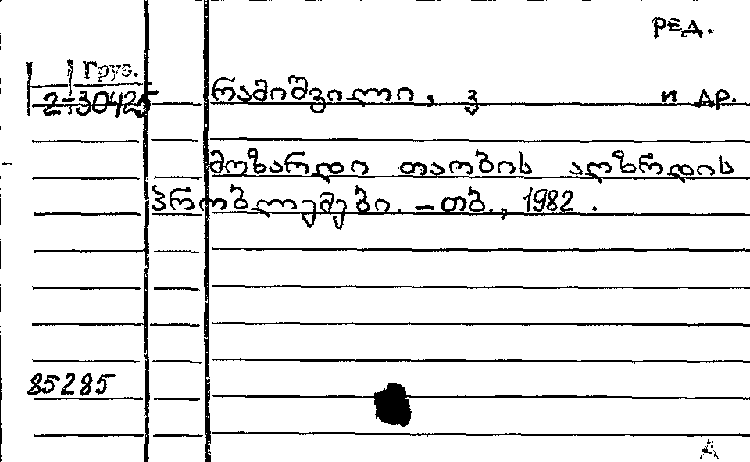 РЕД.
Груз.
2-30425
რამიშვილი, ვ и др.
მოზარდი თაობის აღზრდის
პრობლემები. – თბ., 1982.
85285